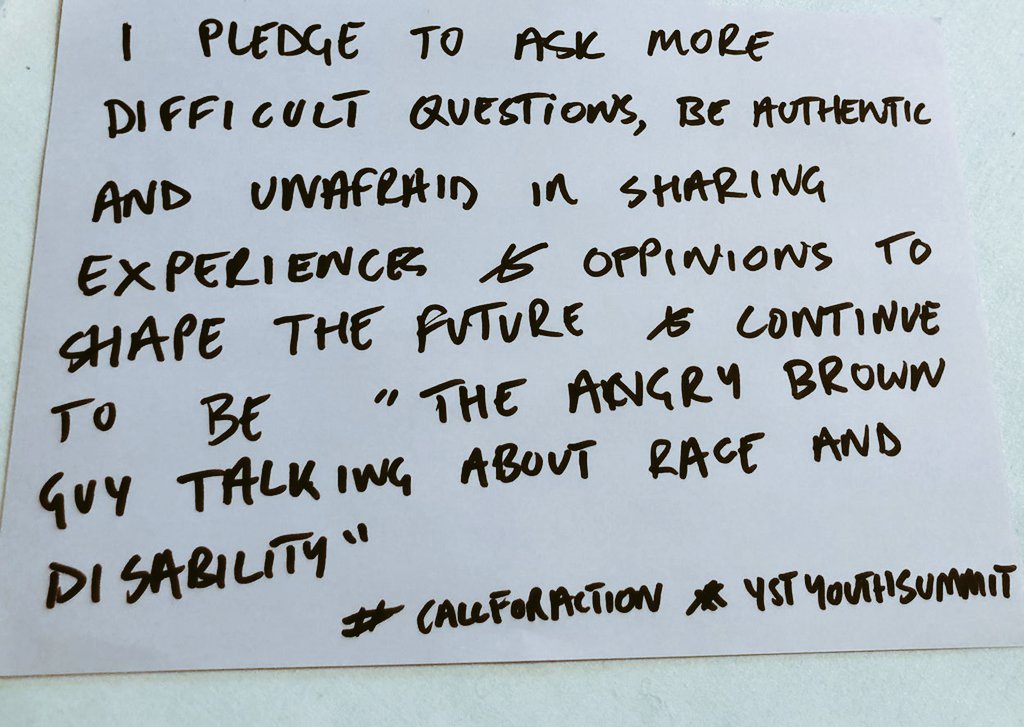 I PLEDGE TO ASK MORE
DIFFICULT QUESTIONS, BE AUTHENTIC
AND UNAFRAID IN SHARING
EXPERIENCES & OPPINIONS TO
SHAPE THE FUTURE & CONTINUE
TO BE "THE ANGRY BROWN
GUY TALKING ABOUT RACE AND
DISABILITY"
# CALLFORACTION # YSTYOUTHSUMMIT